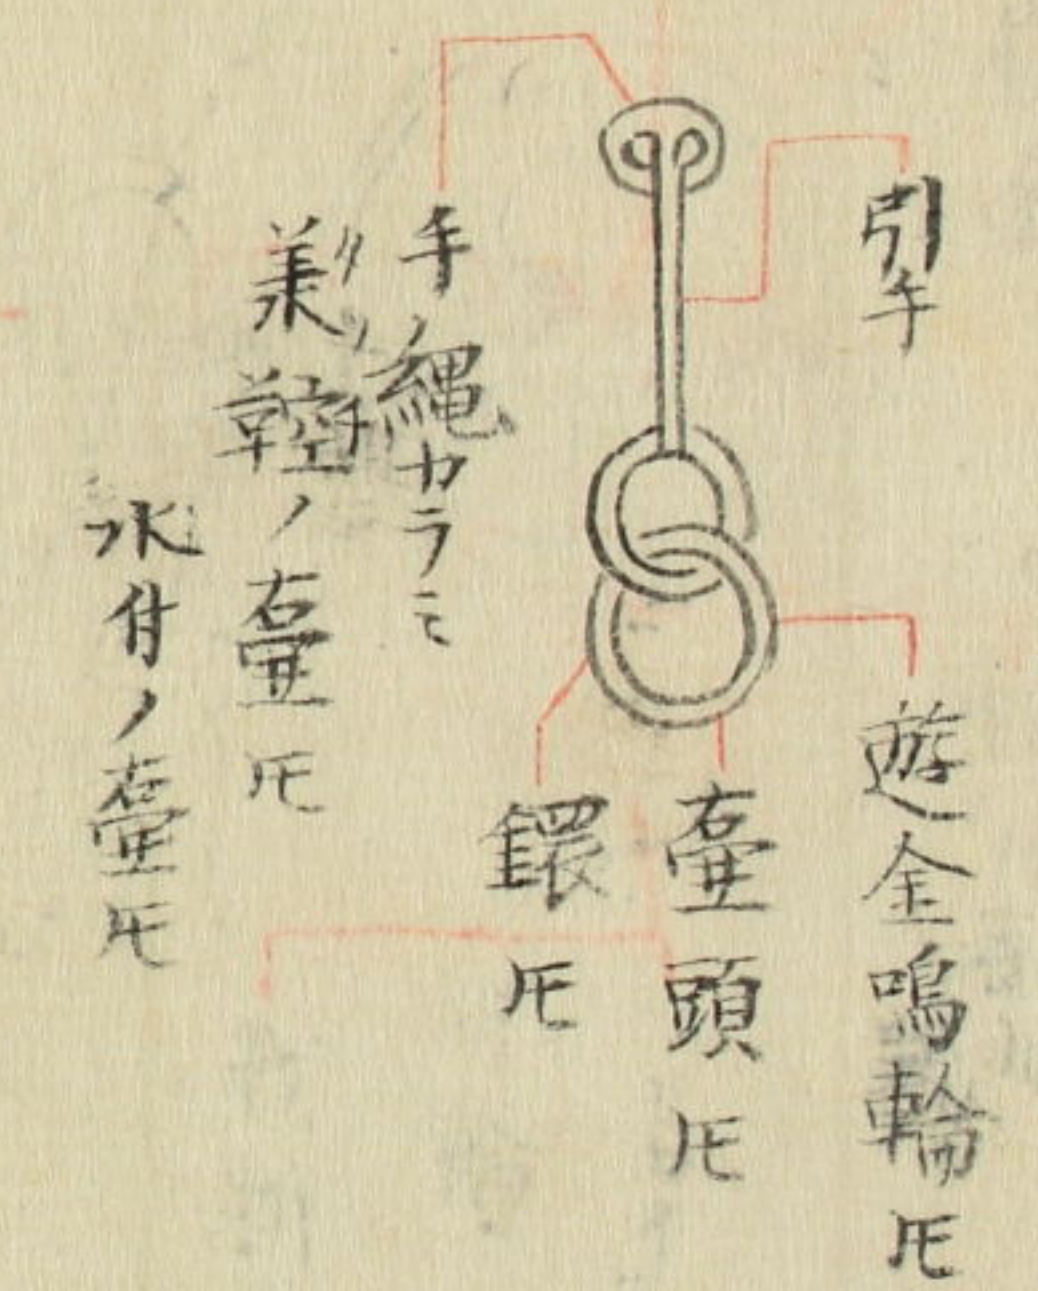 引手
遊金鳴輪𪜈
壷頭𪜈
鐶𪜈
手ノ縄カラミ
美鞚ノ壷𪜈
水付ノ壷𪜈